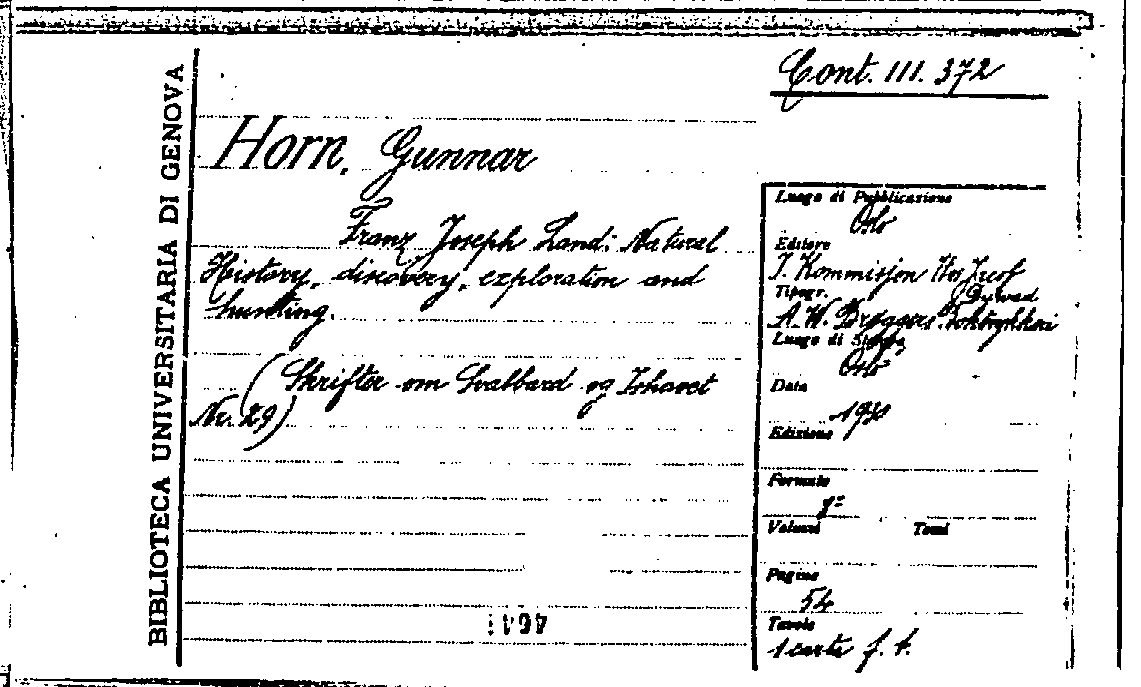 BIBLIOTECA UNIVERSITARIA DI GENOVA
Cont. III. 372
Horn, Gunnar
Franz Joseph Land: Natural
History, discovery, exploration and
hunting.
(Skrifter om Svalbard og Ishavet
Nr. 29)
Luogo di Pubblicazione
Oslo
Editore
I. Kommisjon Hos Jacob
Dywad
Tipogr.
A. W. Brøggers
Luogo di Stampa
Oslo
Data
1930
Edizione
Formato
8º
Volumi Tomi
Pagine
54
Tavole
1 carta f. t.